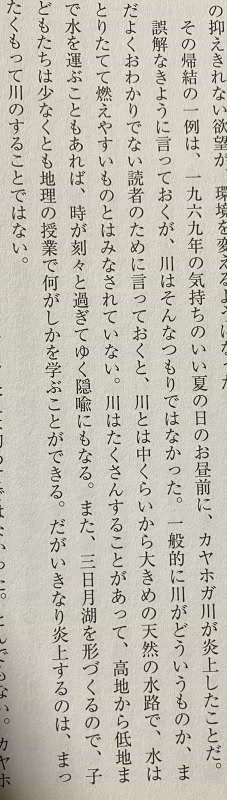 の抑えきれない欲望が、環境を変えるようになった
その帰結の一例は、一九六九年の気持ちのいい夏の日のお昼前に、カヤホガ川が炎上したことだ。
誤解なきように言っておくが、川はそんなつもりではなかった。一般的に川がどういうものか、ま
だよくおわかりでない読者のために言っておくと、川とは中くらいから大きめの天然の水路で、水は
とりたてて燃えやすいものとはみなされていない。川はたくさんすることがあって、高地から低地ま
で水を運ぶこともあれば、時が刻々と過ぎてゆく隠喩にもなる。また、三日月湖を形づくるので、子
どもたちは少なくとも地理の授業で何がしかを学ぶことができる。だがいきなり炎上するのは、まっ
たくもって川のすることではない。
ではなかった。とんでもない。カヤホ